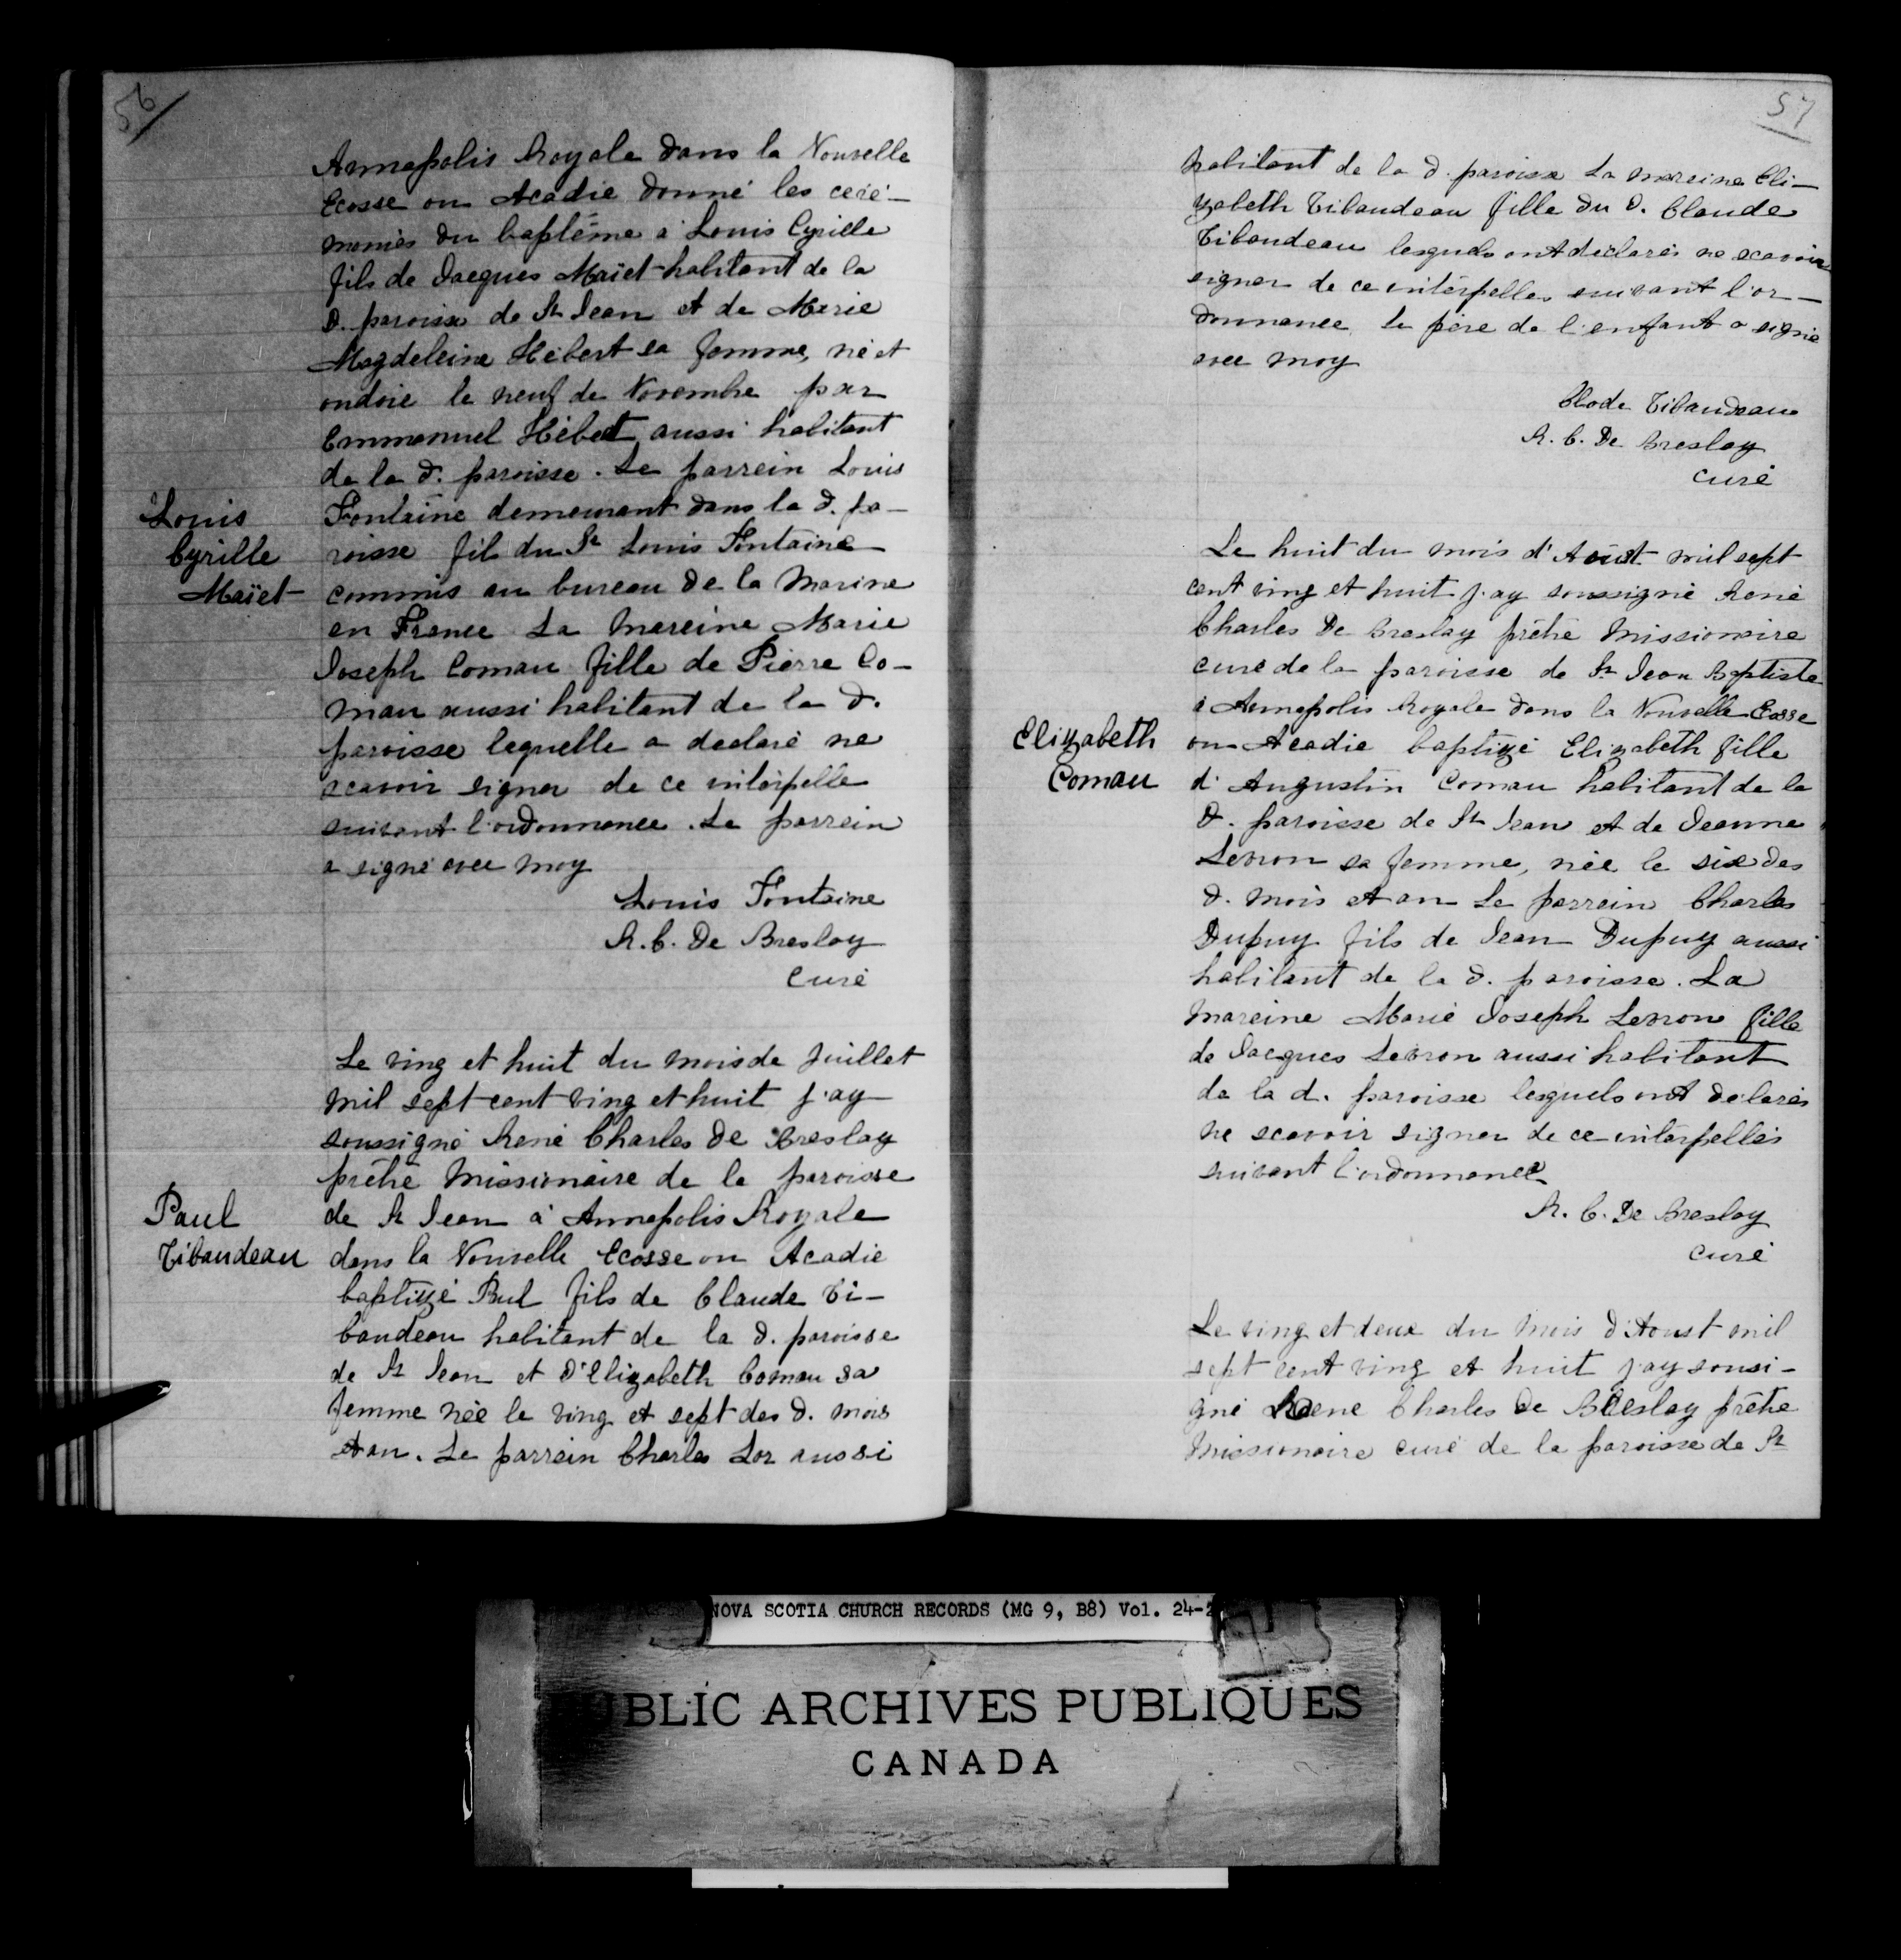 56
Annapolis Royale dans la Nouvelle
Ecosse ou Acadie donné les céré-
monies du baptême à Louis Cyrille
fils de Jacques Maïet habitant de la
d. paroisse de St Jean et de Marie
Magdeleine Hébert sa femme, né et
ondoié le neuf de Novembre par
Emmanuel Hébert aussi habitant
de la d. paroisse. Le parrein Louis
Louis
Cyrille
Maïet
Fontaine demeurant dans la d. pa-
roisse fil du Sr Louis Fontaine
commis au bureau de la Marine
en France La Mareine Marie
Joseph Comau fille de Pierre Co-
mau aussi habitant de la d.
paroisse lequelle a declaré ne
scavoir signer de ce interpelle
suivant l'ordonnance. Le parrein
a signé avec moy
Louis Fontaine
R. C. De Breslay
Curé
Le ving et huit du mois de Juillet
mil sept cent ving et huit j'ay
soussigné René Charles De Breslay
prêtre Missionaire de la paroisse
Paul
Tibaudeau
de St Jean à Annapolis Royale
dans la Nouvelle Ecosse ou Acadie
baptizé Paul fils de Claude Ti-
baudeau habitant de la d. paroisse
de St Jean et d'Elizabeth Comau sa
femme née le ving et sept des d. mois
et an. Le parrein Charles Lor aussi
57
habitant de la d. paroisse La mareine Eli-
zabeth Tibaudeau fille du d. Claude
Tibaudeau lesquels ont déclarés ne scavoir
signer de ce interpelles suivant l'or-
donnance, le père de l'enfant a signé
avec moy
Clode Tibaudeau
R. C. De Breslay
Curé
Le huit du mois d'Aoust mil sept
cent ving et huit j'ay soussigné René
Charles De Breslay prêtre Missionaire
curé de la paroisse de St Jean Baptiste
à Annapolis Royale dans la Nouvelle Ecosse
Elizabeth
Comau
ou Acadie baptizé Elizabeth fille
d'Augustin Comau habitant de la
d. paroisse de St Jean et de Jeanne
Levron sa femme, née le six des
d. mois et an Le parrein Charles
Dupuy fils de Jean Dupuy aussi
habitant de la d. paroisse. La
mareine Marie Joseph Levron fille
de Jacques Levron aussi habitant
de la d. paroisse lesquels ont declarés
ne scavoir signer de ce interpellés
suivant l'ordonnance
R. C. De Breslay
curé
Le ving et deux du mois d'Aoust mil
sept cent ving et huit j'ay sousi-
gné Réene Charles de Breslay prêtre
Missionaire curé de la paroisse de St
NOVA SCOTIA CHURCH RECORDS (MG 9, B8) Vol. 24-2
PUBLIC ARCHIVES PUBLIQUES
CANADA